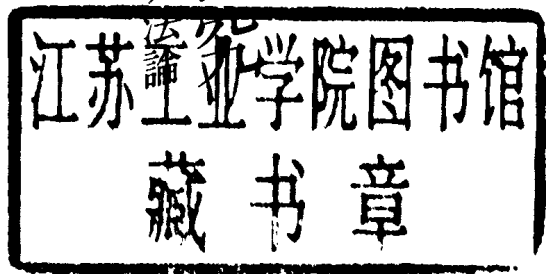 江苏工业学院图书馆
藏书章
法論